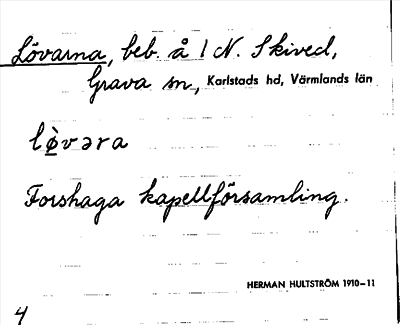 Lövarna, beb. å 1 N. Skived,
Grava sn, Karlstads hd, Värmlands län
lø̀vəra
Forshaga kapellförsamling.
HERMAN HULTSTRÖM 1910–11
4